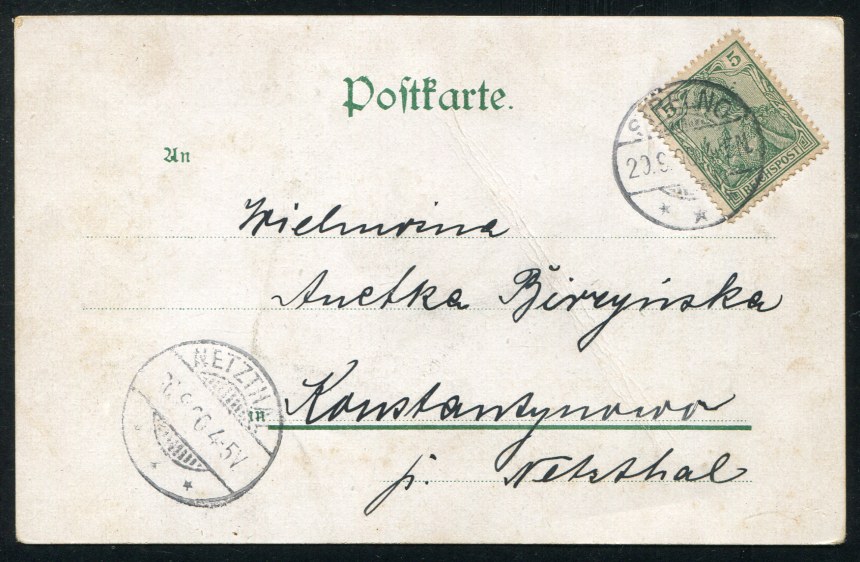 Postkarte.
An
5
5
REICHSPOST
Wielmożna
Anetka Birzyńska
in Konstantynowo
p. Netzthal
NETZTHAL
4-5V